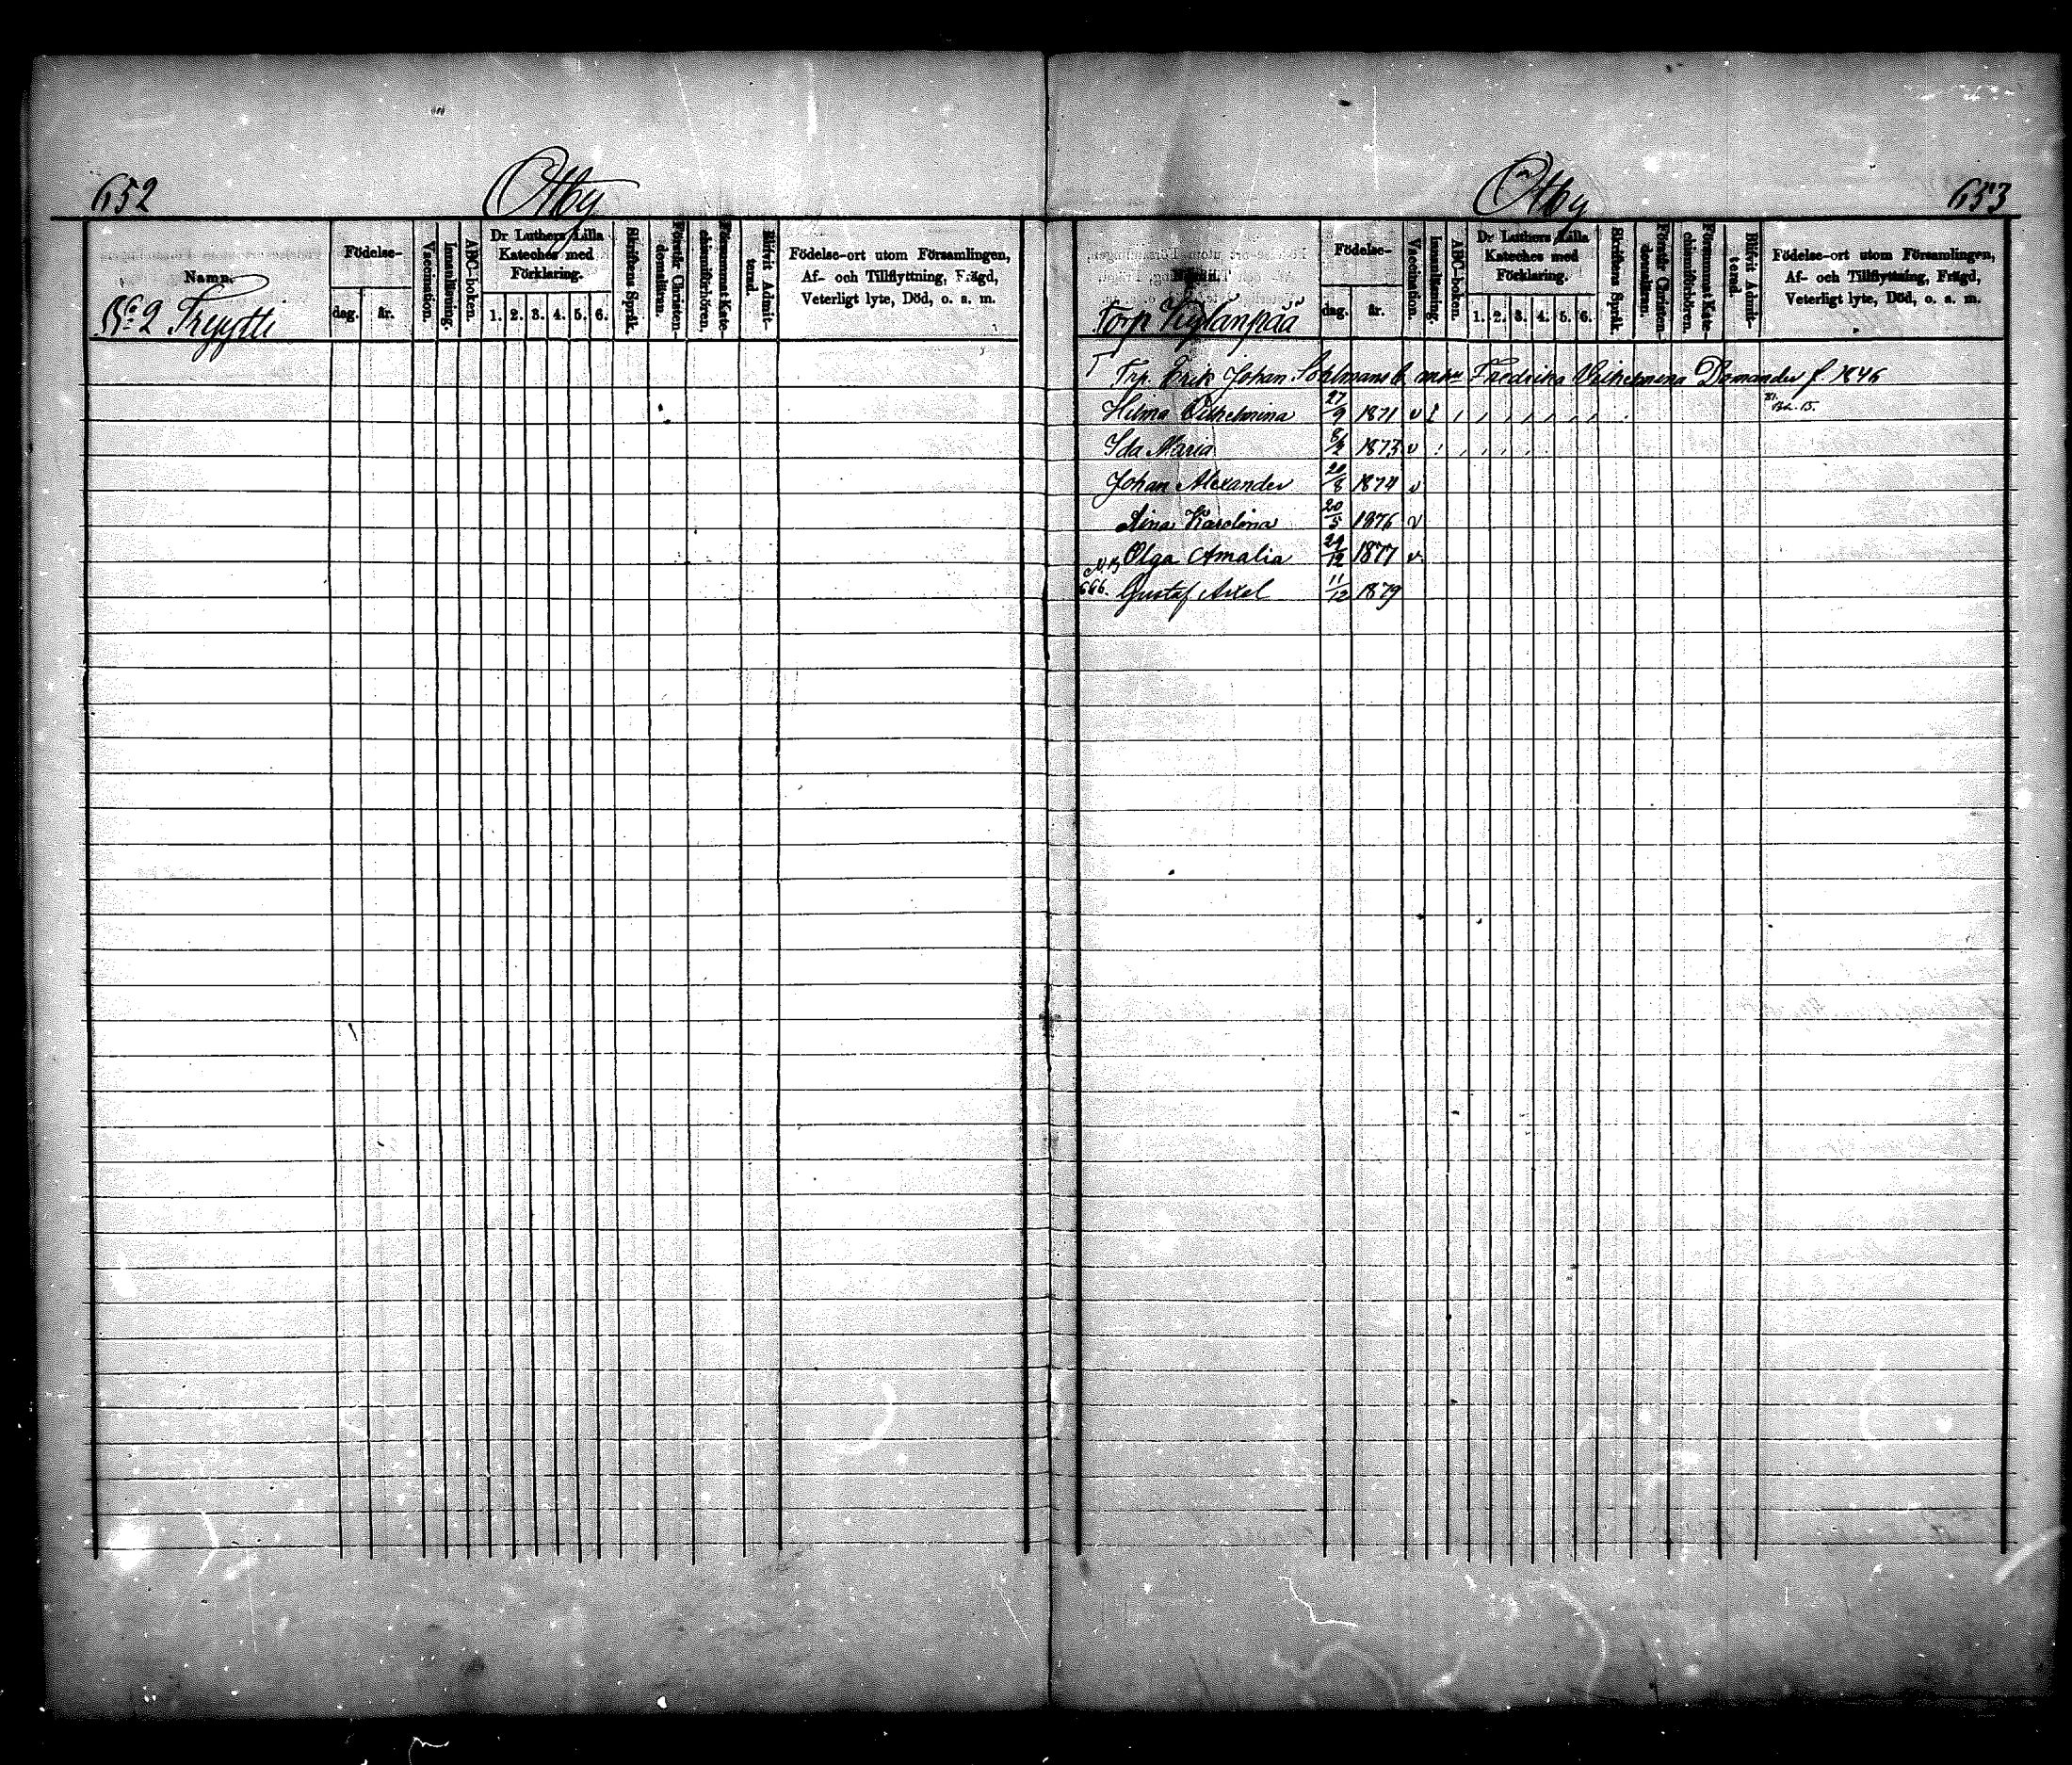 652
Otby
Namn.
Födelse-
dag.
år.
Vaccination.
Innanläsning.
ABC-boken.
Dr Luthers Lilla
Kateches med
Förklaring.
1. 2. 3. 4. 5. 6.
Skriftens Språk.
Förstår Christen-
domsläran.
Försummat Kate-
chismiförhören.
Blifvit Admit-
terad.
Födelse-ort utom Församlingen,
Af- och Tillflyttning, Frägd,
Veterligt lyte, Död, o. s. m.
No 2
653
Otby
Namn.
Torp
Födelse-
dag.
år.
Vaccination.
Innanläsning.
ABC-boken.
Dr Luthers Lilla
Kateches med
Förklaring.
1. 2. 3. 4. 5. 6.
Skriftens Språk.
Förstår Christen-
domsläran.
Försummat Kate-
chismiförhören.
Blifvit Admit-
terad.
Födelse-ort utom Församlingen,
Af- och Tillflyttning, Frägd,
Veterligt lyte, Död, o. s. m.
Trp. Erik Johan Sohlmans Fredrika Vilhelmina Domander f. 1846
Hilma Vilhelmina 27/9 1871 v
Ida Maria 8/2 1873 v
Johan Alexander 20/8 1874 v
Aina Karolina 20/5 1876 v
Olga Amalia 29/12 1877 v
N.B
666. Gustaf Axel 11/12 1879